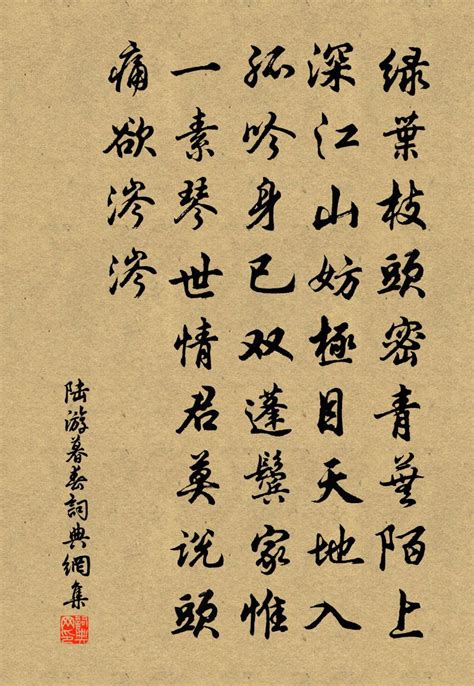 绿葉枝頭密青蕪陌上
深江山妨極目天地入
孤吟身已双蓬鬓家惟
一素琴世情君莫说頭
痛欲涔涔
陆游暮春詞典網集